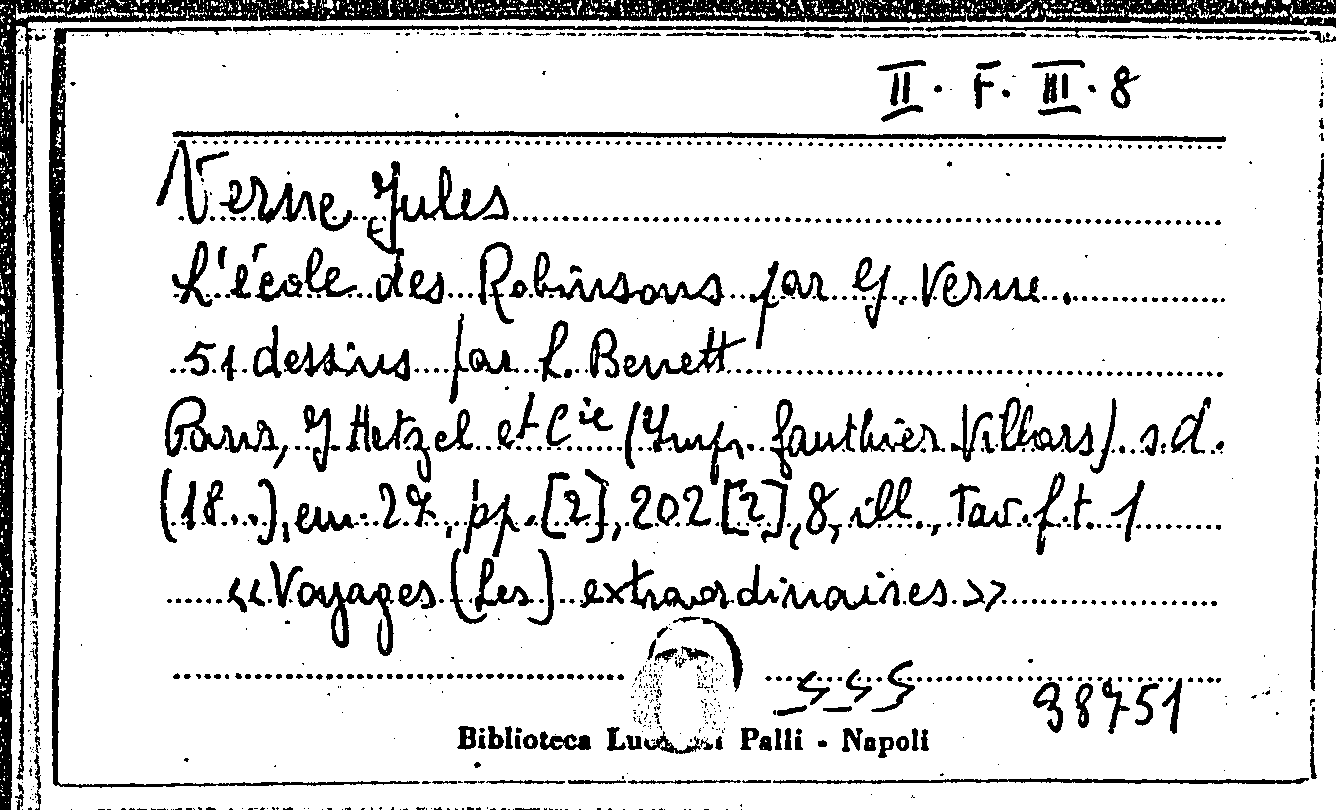 II. F. III. 8
Verne Jules
L'école des Robinsons par J. Verne.
51 dessins par L. Benett
Paris, J Hetzel et Cie (Impr. Gauthier Villars) s.d.
(18..), cm. 27, pp. [2], 202 [2], 8, ill., tav. f. t. 1
«Voyages (Les) extraordinaires»
38751
Biblioteca Palli - Napoli